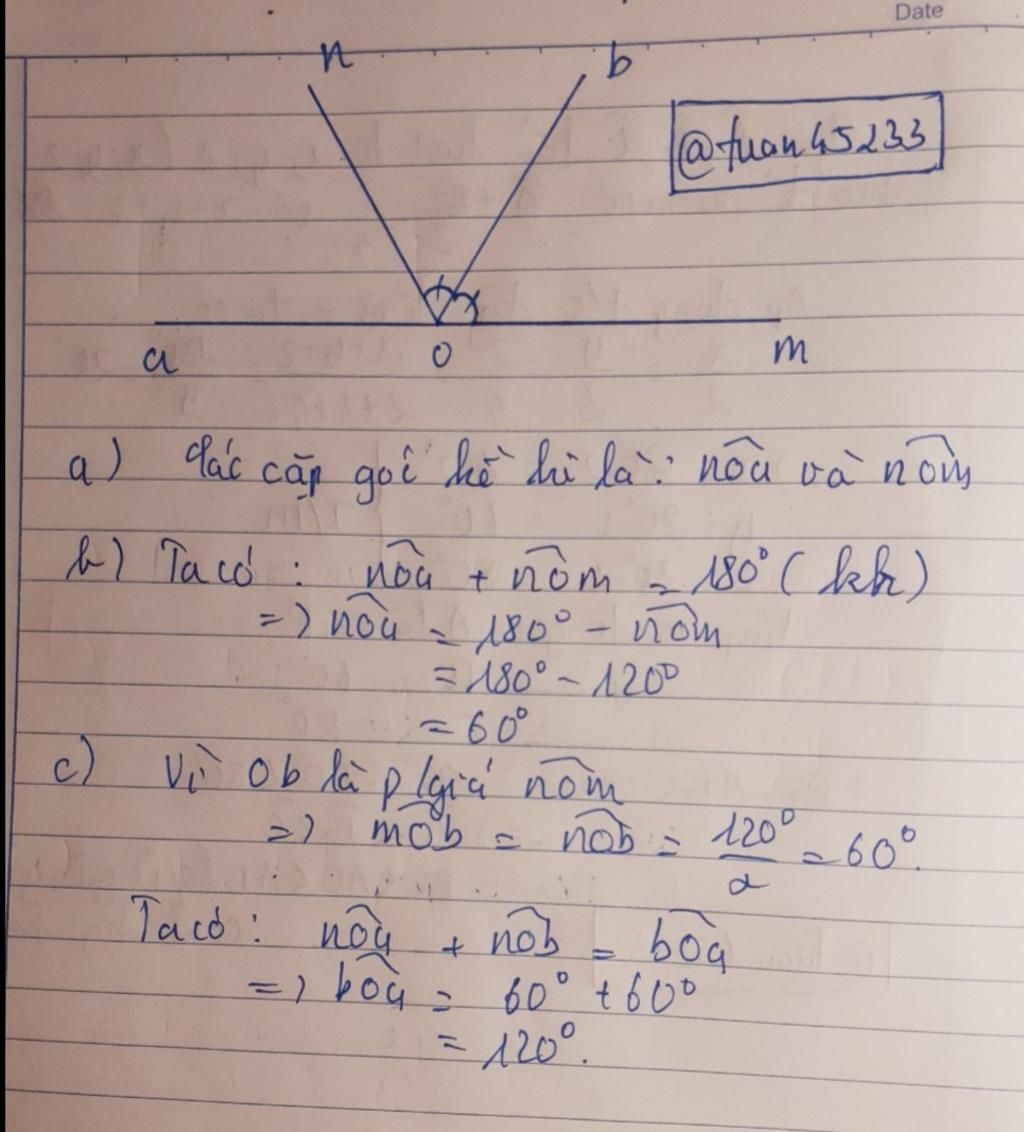 Date
n
b
@tuan45233
a
O
m
a) Các cặp goí kề bì là: nôa và nôm
b) Ta có : nôa + nôm = 180° (kb)
=> nôa = 180° - nôm
= 180° - 120°
= 60°
c) Vì Ob là p/giá nôm
=> môb = nôb = 120°/2 = 60°.
Ta có : nôa + nôb = bôa
=> bôa = 60° + 60°
= 120°.